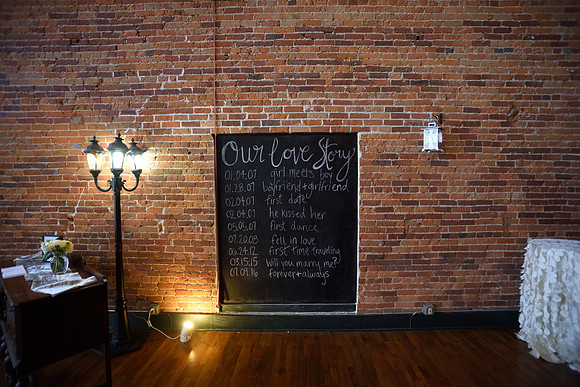 Our love Story
01.04.07 girl meets boy
01.28.07 boyfriend + girlfriend
02.04.07 first date
02.04.07 he kissed her
05.05.07 first dance
07.20.08 fell in love
06.24.12 first time traveling
03.15.15 Will you marry me?
07.09.16 forever + always